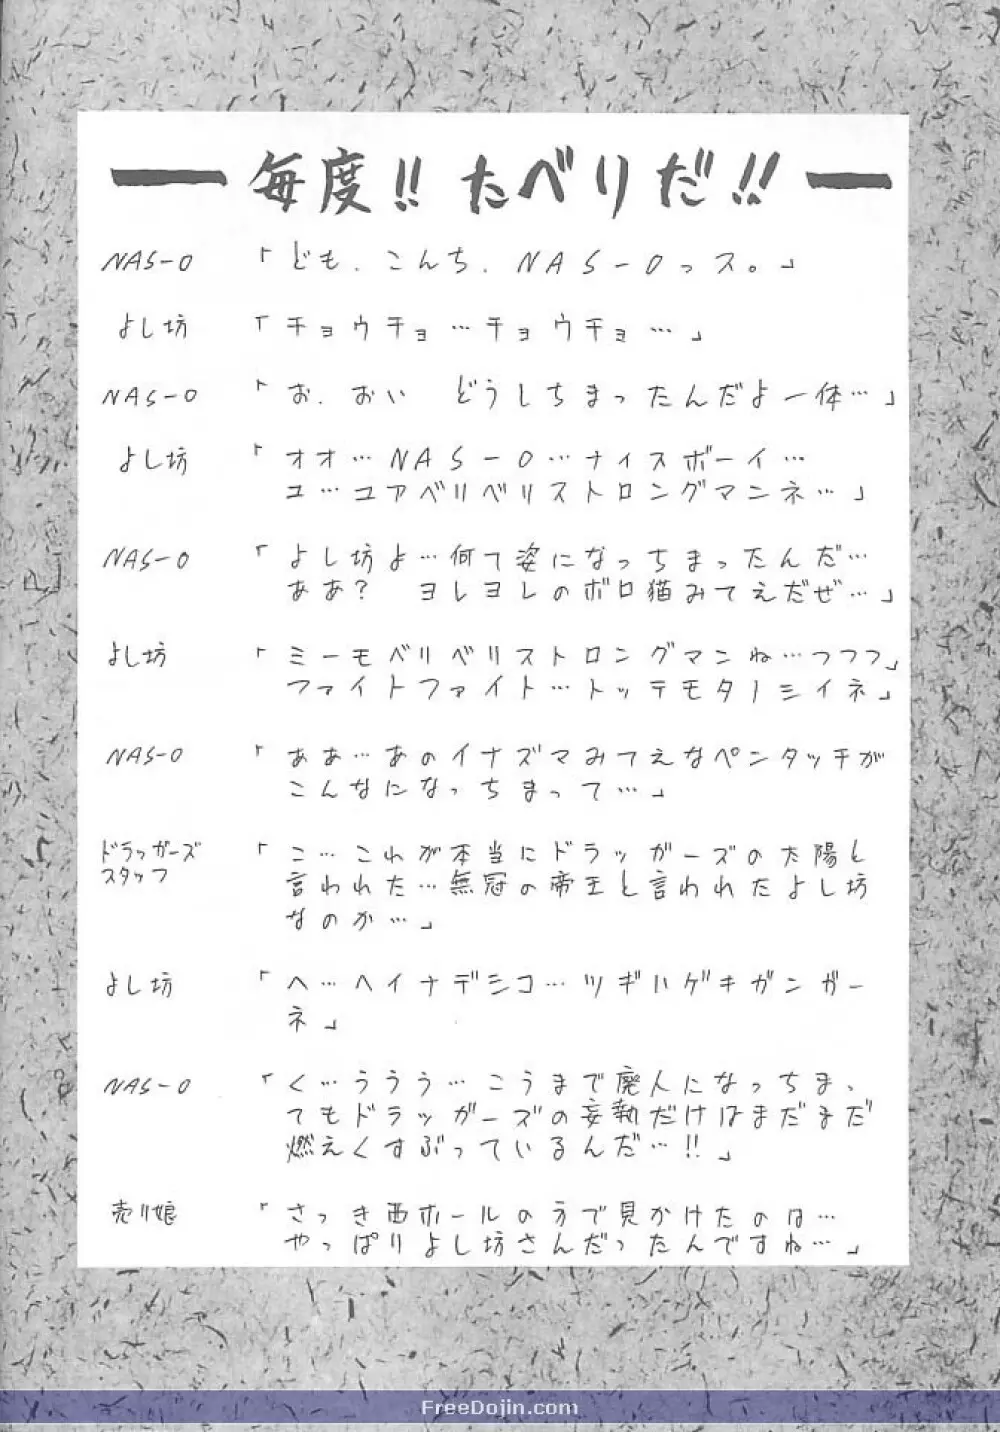 毎度!! たべりだ!!
NAS-O 「ども、こんち、NAS-Oっス。」
よし坊 「チョウチョ…チョウチョ…」
NAS-O 「お、おい どうしちまったんだよ一体…」
よし坊 「オオ…NAS-O…ナイスボーイ…
ユ…ユアベリベリストロングマンネ…」
NAS-O 「よし坊よ…何て姿になっちまったんだ…
ああ? ヨレヨレのボロ猫みてえだぜ…」
よし坊 「ミーモベリベリストロングマンね…フフフ」
ファイトファイト…トッテモタノシイネ」
NAS-O 「ああ…あのイナズマみてえなペンタッチが
こんなになっちまって…」
ドラッガーズ 「こ…これが本当にドラッガーズの太陽と
スタッフ 言われた…無冠の帝王と言われたよし坊
なのか…」
よし坊 「ヘ…ヘイナデシコ…ツギハゲキガンガー
ネ」
NAS-O 「く…ううう…こうまで廃人になっちまっ
てもドラッガーズの妄執だけはまだまだ
燃えくすぶっているんだ…!!」
売り娘 「さっき西ホールの方で見かけたのは…
やっぱりよし坊さんだったんですね…」
FreeDojin.com